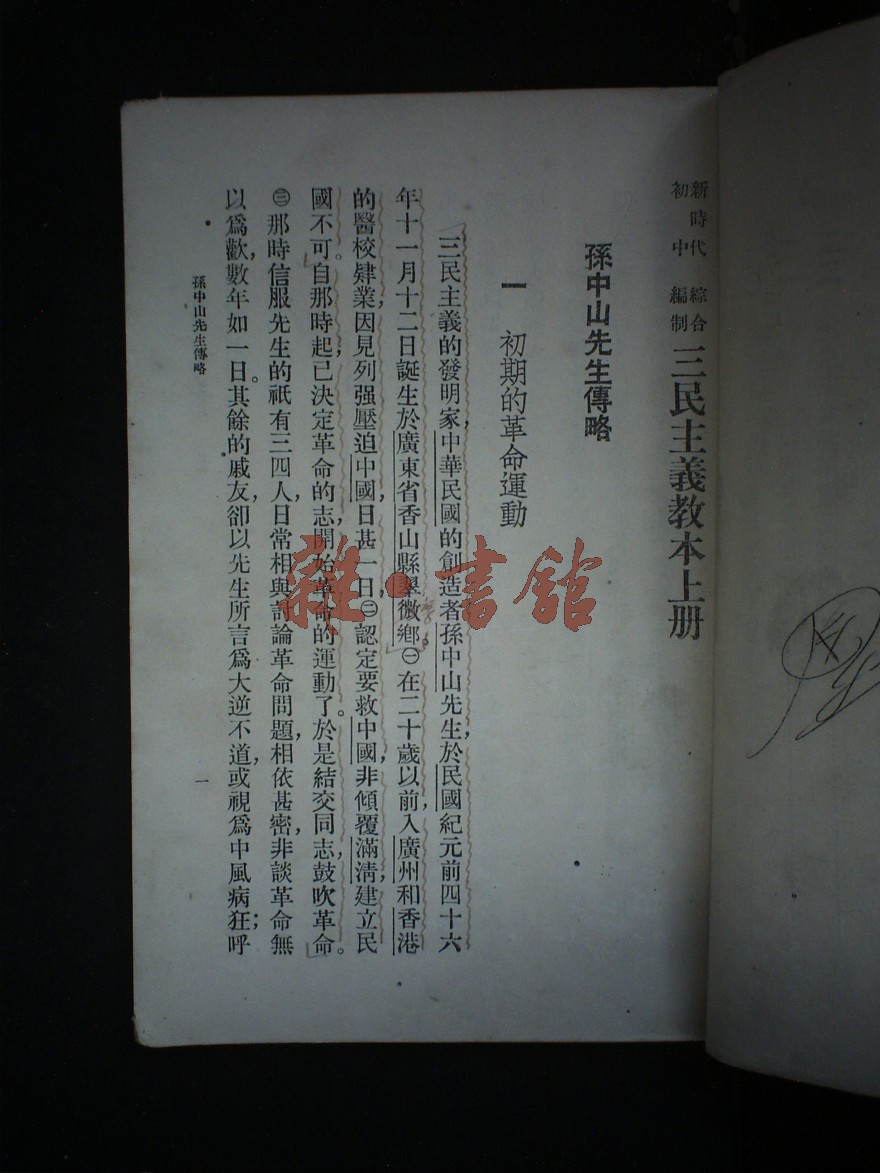 新時代 綜合
初中 編制
三民主義教本上册
孫中山先生傳略
一 初期的革命運動
三民主義的發明家,中華民國的創造者孫中山先生,於民國紀元前四十六
年十一月十二日誕生於廣東省香山縣翠微鄉。㊀在二十歲以前,入廣州和香港
的醫校肄業,因見列强壓迫中國,日甚一日,㊁認定要救中國,非傾覆滿淸,建立民
國不可。自那時起,已決定革命的志,開始革命的運動了。於是結交同志,鼓吹革命。
㊂那時信服先生的祇有三四人,日常相與討論革命問題,相依甚密,非談革命無
以爲歡,數年如一日。其餘的戚友,卻以先生所言爲大逆不道,或視爲中風病狂;呼
孫中山先生傳略
一
雜·書館